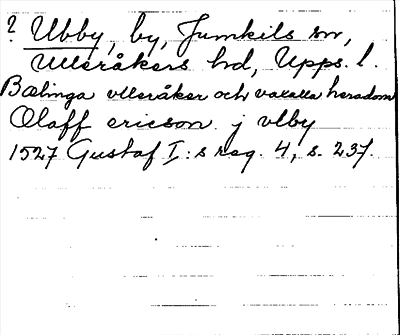 ? Ubby, by, Jumkils sn,
Ulleråkers hd, Upps. l.
Balinga vlleråker och vaxalla heradom
Olaff ericson j vlby
1527 Gustaf I:s reg. 4, s. 237.